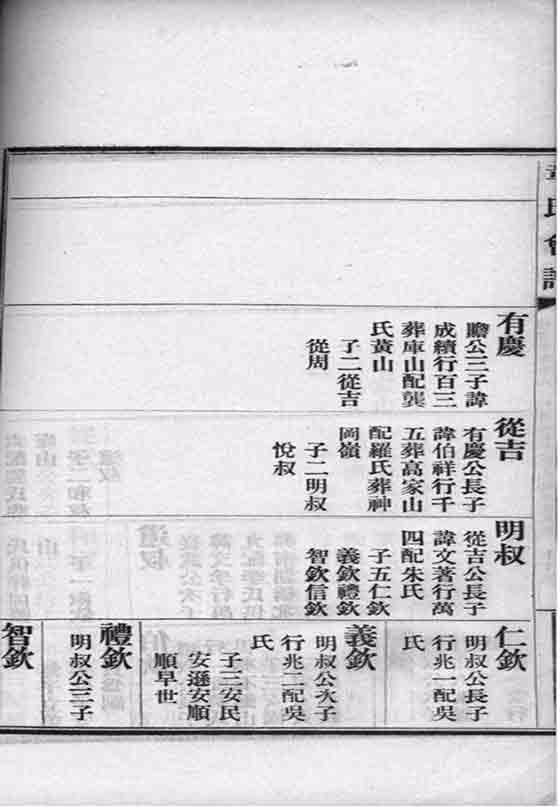 氏會譜
有慶
贍公三子諱
成續行百三
葬庫山配龔
氏黃山
子二從吉
從周
從吉
有慶公長子
諱伯祥行千
五葬高家山
配羅氏葬神
岡嶺
子二明叔
悅叔
明叔
從吉公長子
諱文著行萬
四配朱氏
子五仁欽
義欽禮欽
智欽信欽
仁欽
明叔公長子
行兆一配吳
氏
義欽
明叔公次子
行兆二配吳
氏
子三安民
安遜安順
順早世
禮欽
明叔公三子
智欽